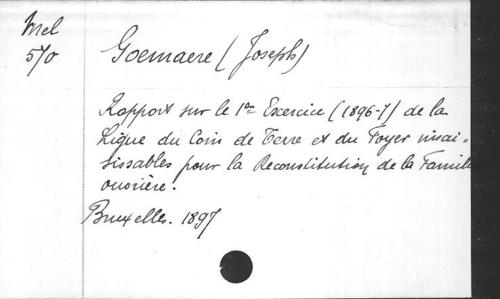 Mel
570
Goemaere (Joseph)
Rapport sur le 1er Exercice (1896-7) de la
Ligue du Coin de Terre et du Foyer insai-
sissables pour la Reconstitution de la Famill
ouvrière.
Bruxelles. 1897